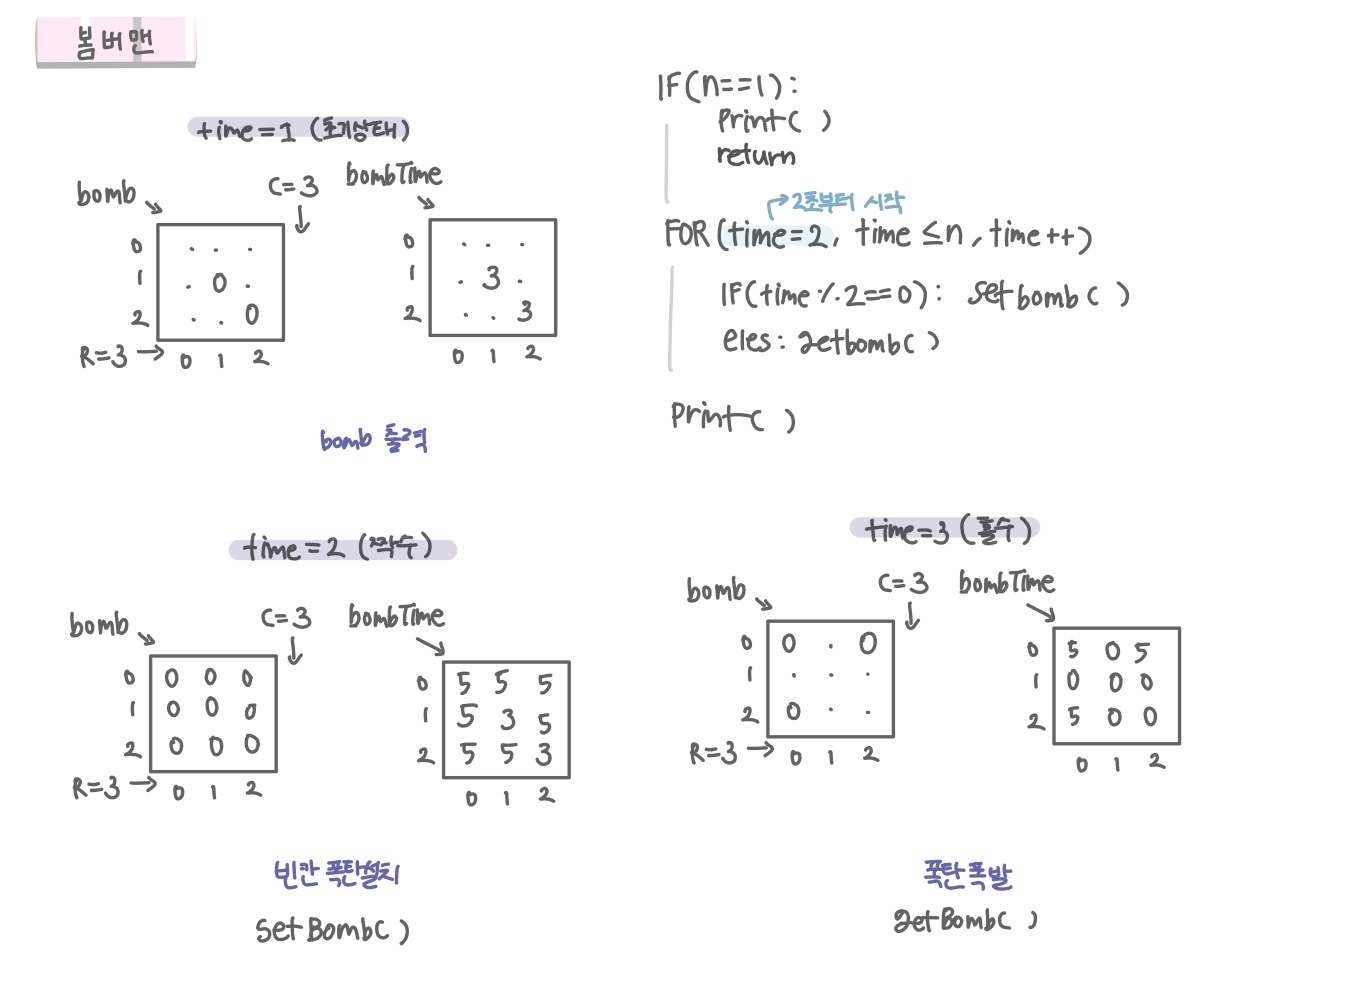 봄버맨
time=1 (초기상태)
bomb
C=3
bombTime
0 . . .
1 . 0 .
2 . . 0
R=3 → 0 1 2
0 . . .
1 . 3 .
2 . . 3
0 1 2
bomb 출력
IF(n==1):
Print( )
return
2초부터 시작
FOR(time=2, time ≤n, time++)
IF(time % 2==0): setbomb( )
eles: getbomb( )
Print( )
time=2 (짝수)
bomb
C=3
bombTime
0 0 0 0
1 0 0 0
2 0 0 0
R=3 → 0 1 2
0 5 5 5
1 5 3 5
2 5 5 3
0 1 2
빈칸 폭탄설치
SetBomb( )
time=3 (홀수)
bomb
C=3
bombTime
0 0 . 0
1 . . .
2 0 . .
R=3 → 0 1 2
0 5 0 5
1 0 0 0
2 5 0 0
0 1 2
폭탄폭발
getBomb( )